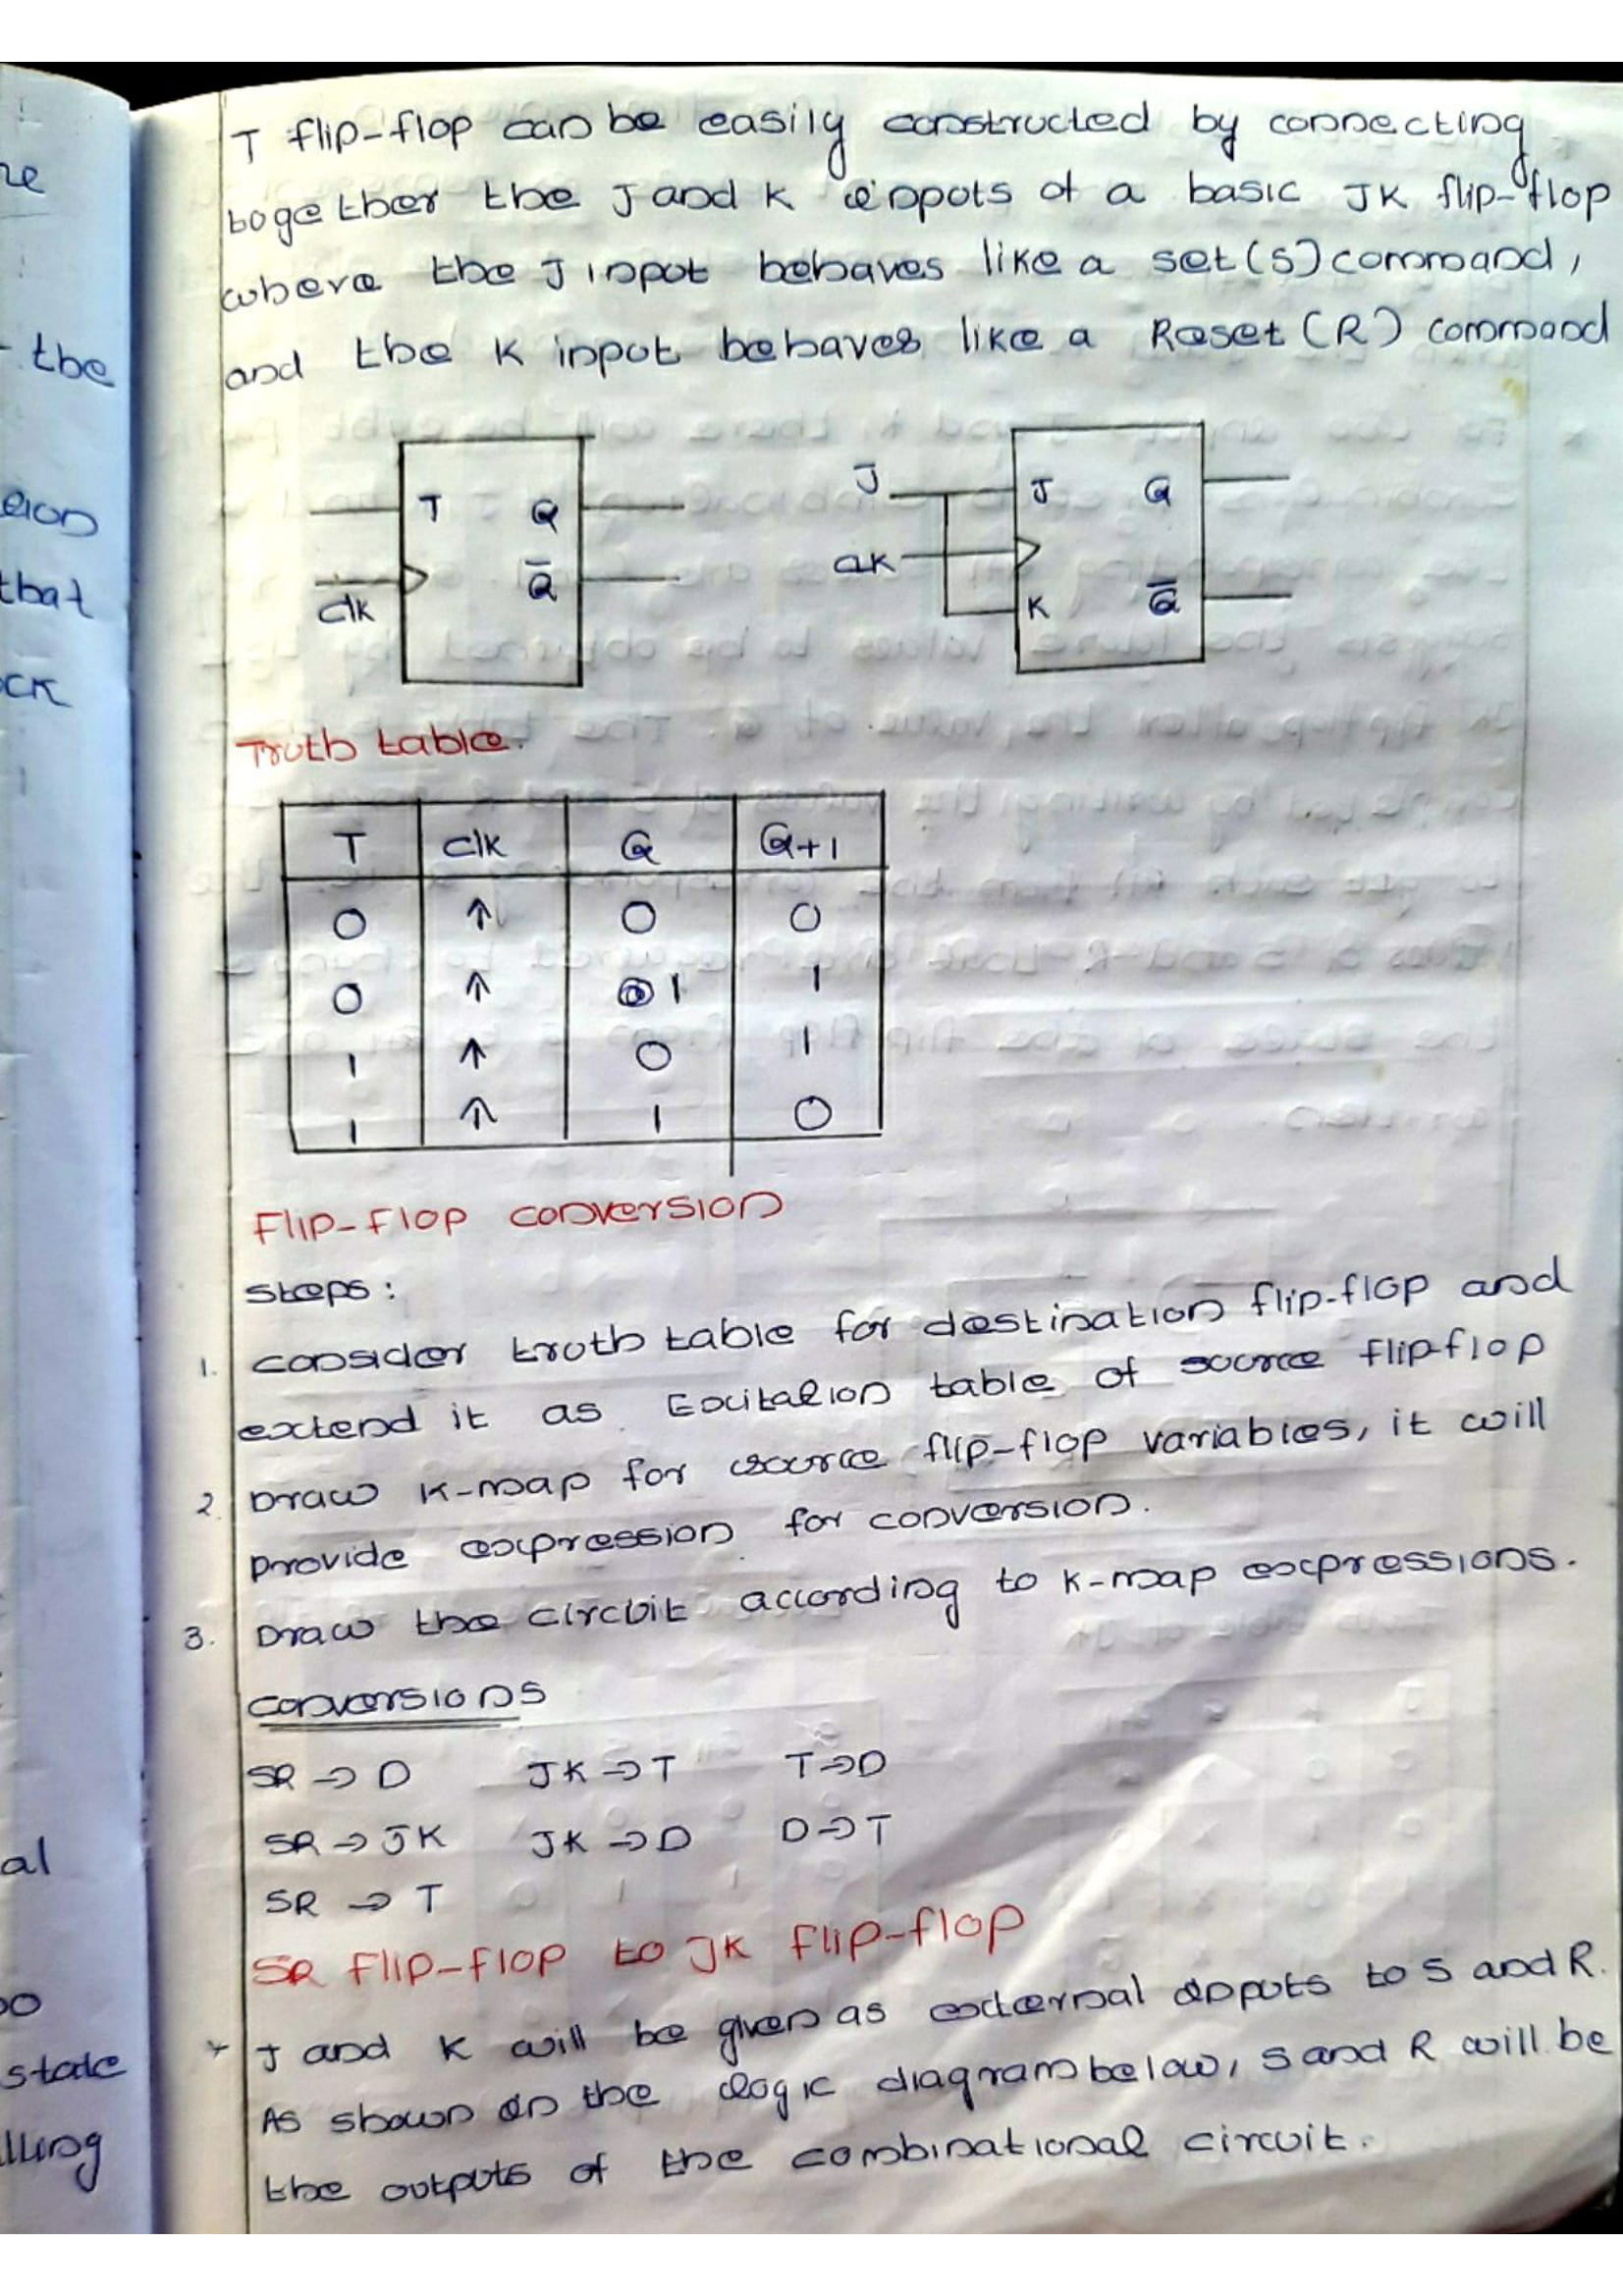 T flip-flop can be easily constructed by connecting
together the J and K inputs of a basic JK flip-flop
where the J input behaves like a set(S) command,
and the K input behaves like a Reset (R) command
T Q
Q̅
clk
J J Q
clk
K Q̅
Truth table.
T clk Q Q+1
0 ↑ 0 0
0 ↑ 1 1
1 ↑ 0 1
1 ↑ 1 0
Flip-Flop conversion
Steps:
1. Consider truth table for destination flip-flop and
extend it as Excitation table of source flipflop
2. Draw K-map for source flip-flop variables, it will
Provide expression for conversion.
3. Draw the circuit according to K-map expressions.
Conversions
SR → D JK → T T → D
SR → JK JK → D D → T
SR → T
SR Flip-flop to JK Flip-flop
* J and K will be given as external inputs to S and R.
As shown in the logic diagram below, S and R will be
the outputs of the combinational circuit.
the
that
ck
al
state